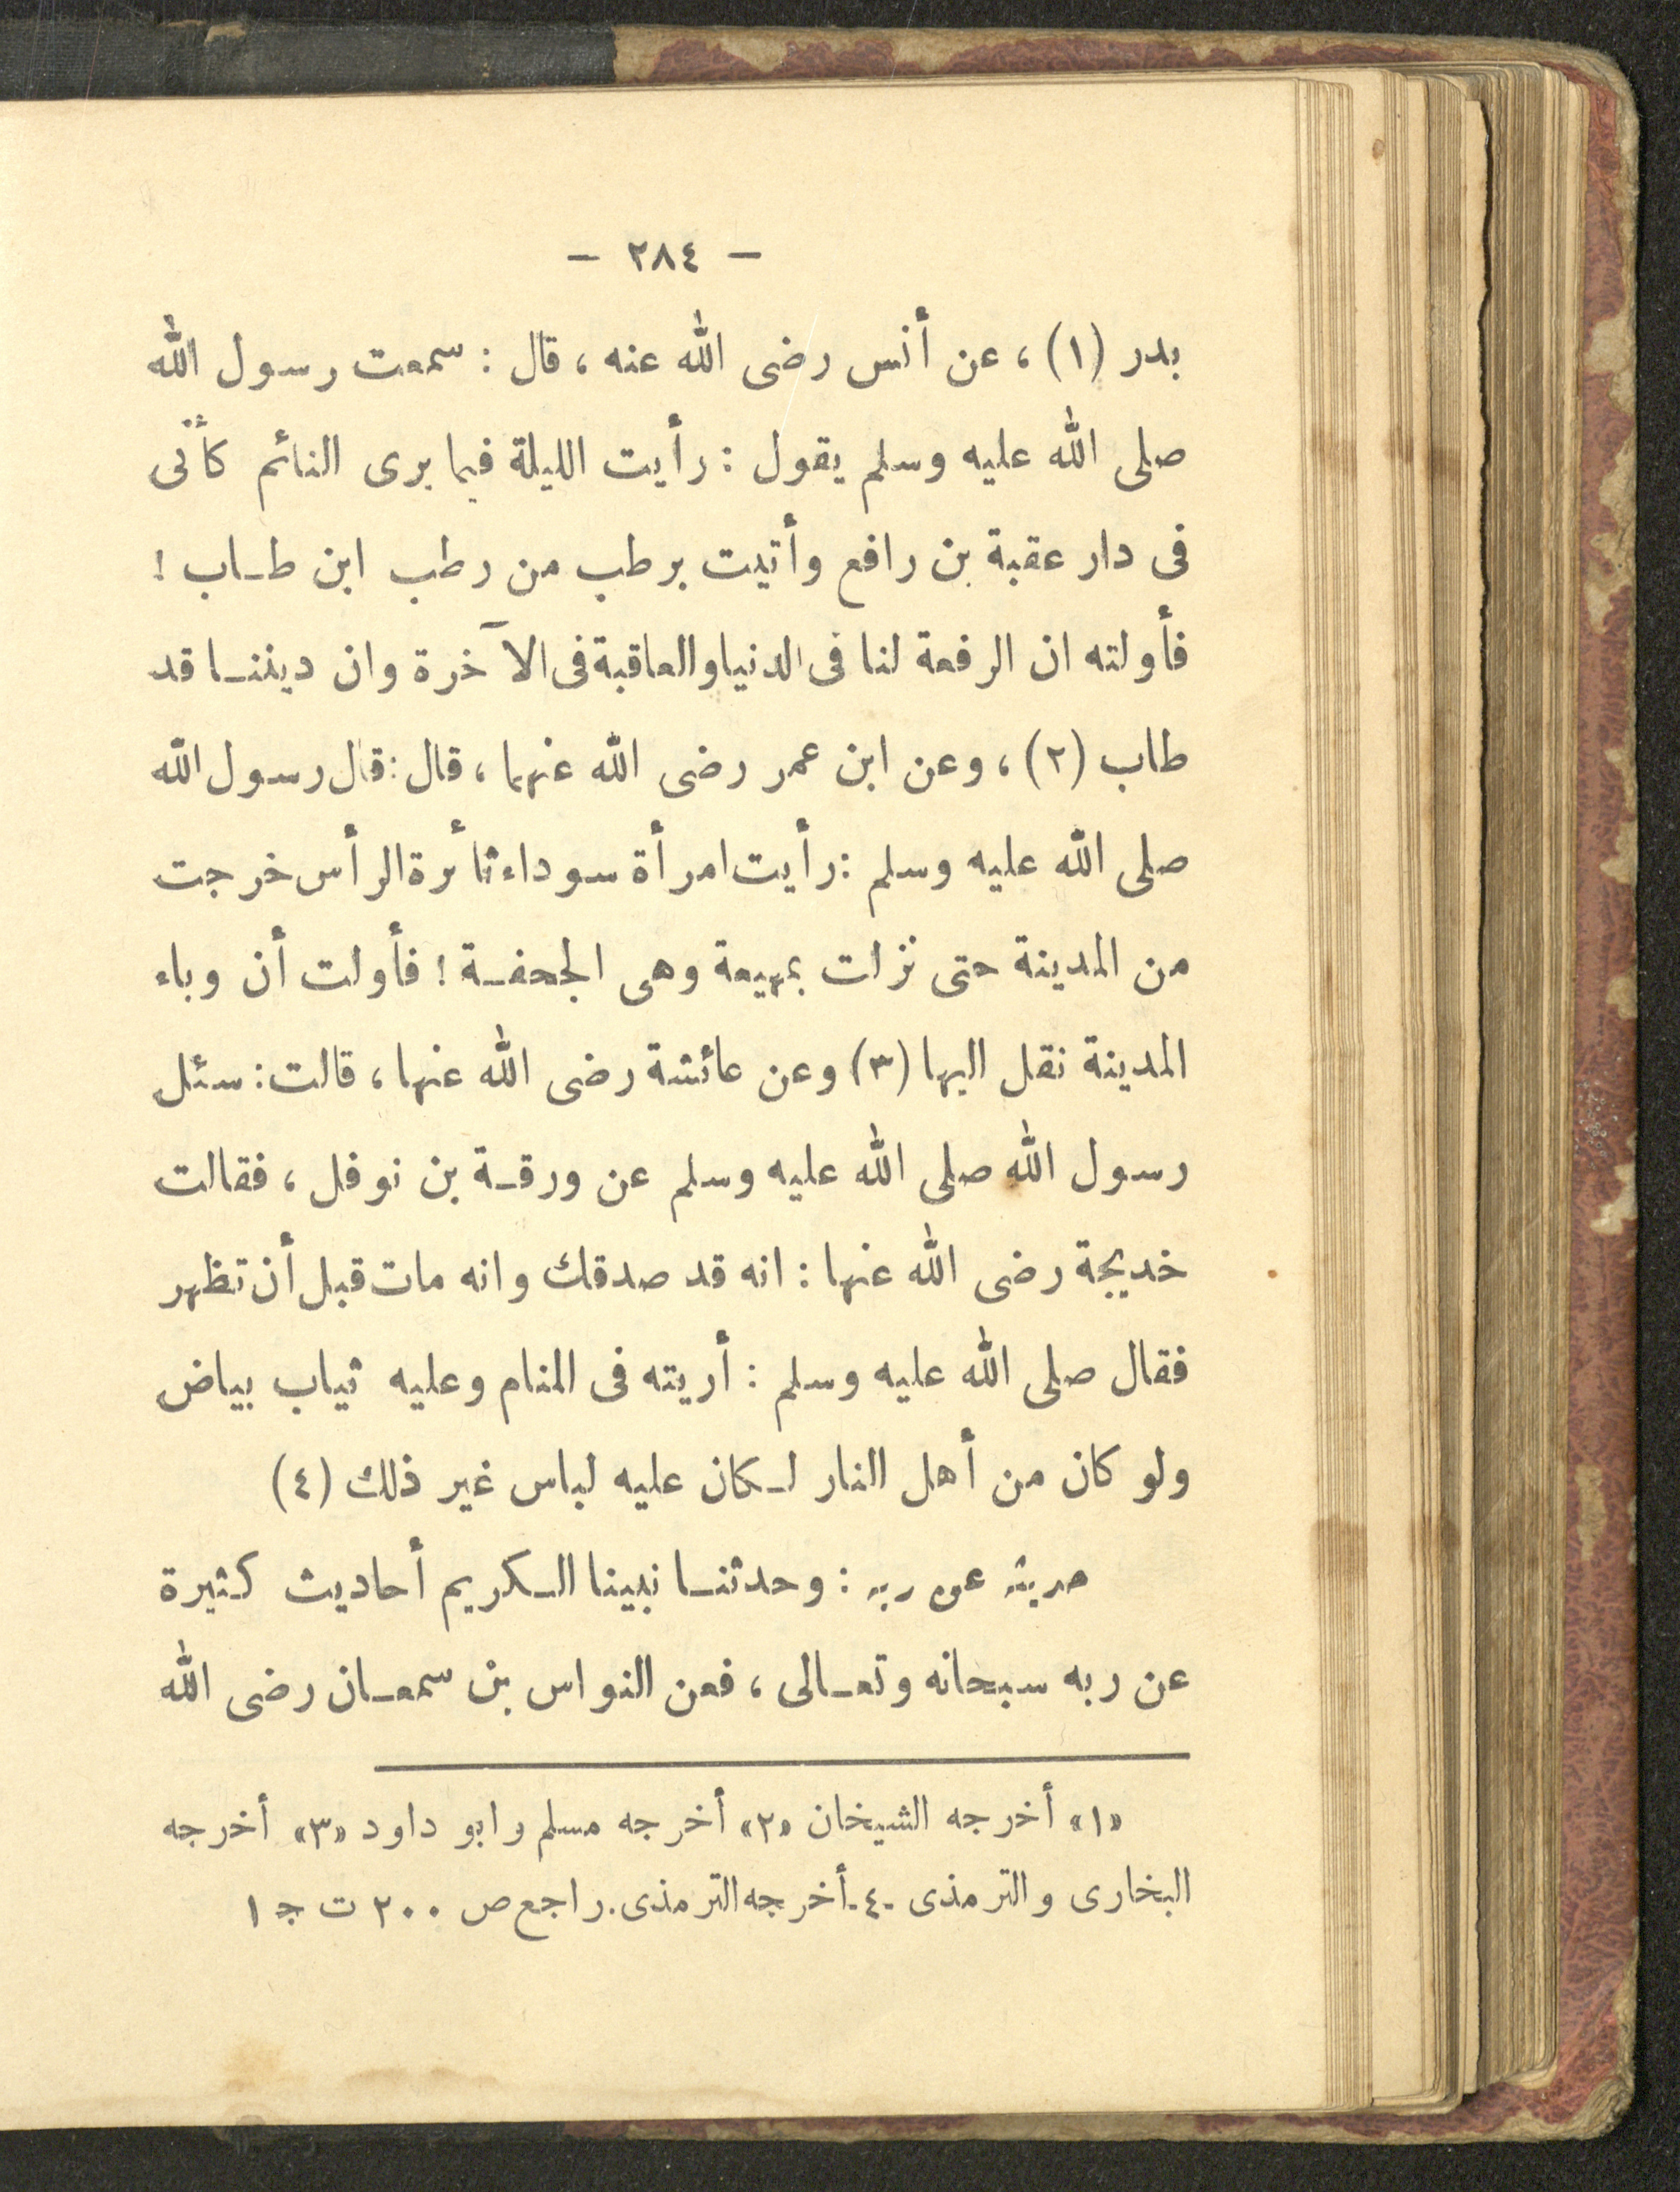 — ٢٨٤ —
بدر (١) ، عن أنس رضى الله عنه ، قال : سمعت رسول الله
صلى الله عليه وسلم يقول : رأيت الليلة فيما يرى النائم كأنى
فى دار عقبة بن رافع وأتيت برطب من رطب ابن طـاب !
فأولته ان الرفعة لنا فى الدنيا والعاقبة فى الآخرة وان ديننـا قد
طاب (٢) ، وعن ابن عمر رضى الله عنهما ، قال : قال رسول الله
صلى الله عليه وسلم : رأيت امرأة سوداء ثائرة الرأس خرجت
من المدينة حتى نزلت بمهيعة وهى الجحفـة ! فأولت أن وباء
المدينة نقل اليها (٣) وعن عائشة رضى الله عنها ، قالت : سئل
رسول الله صلى الله عليه وسلم عن ورقـة بن نوفل ، فقالت
خديجة رضى الله عنها : انه قد صدقك وانه مات قبل أن تظهر
فقال صلى الله عليه وسلم : أريته فى المنام وعليه ثياب بياض
ولو كان من أهل النار لـكان عليه لباس غير ذلك (٤)
حديثه عن ربه : وحدثنـا نبينا الـكريم أحاديث كثيرة
عن ربه سبحانه وتعـالى ، فعن النواس بن سمعـان رضى الله
«١» أخرجه الشيخان «٢» أخرجه مسلم وابو داود «٣» أخرجه
البخارى والترمذى -٤- أخرجه الترمذى. راجع ص ٢٠٠ ت ج ١